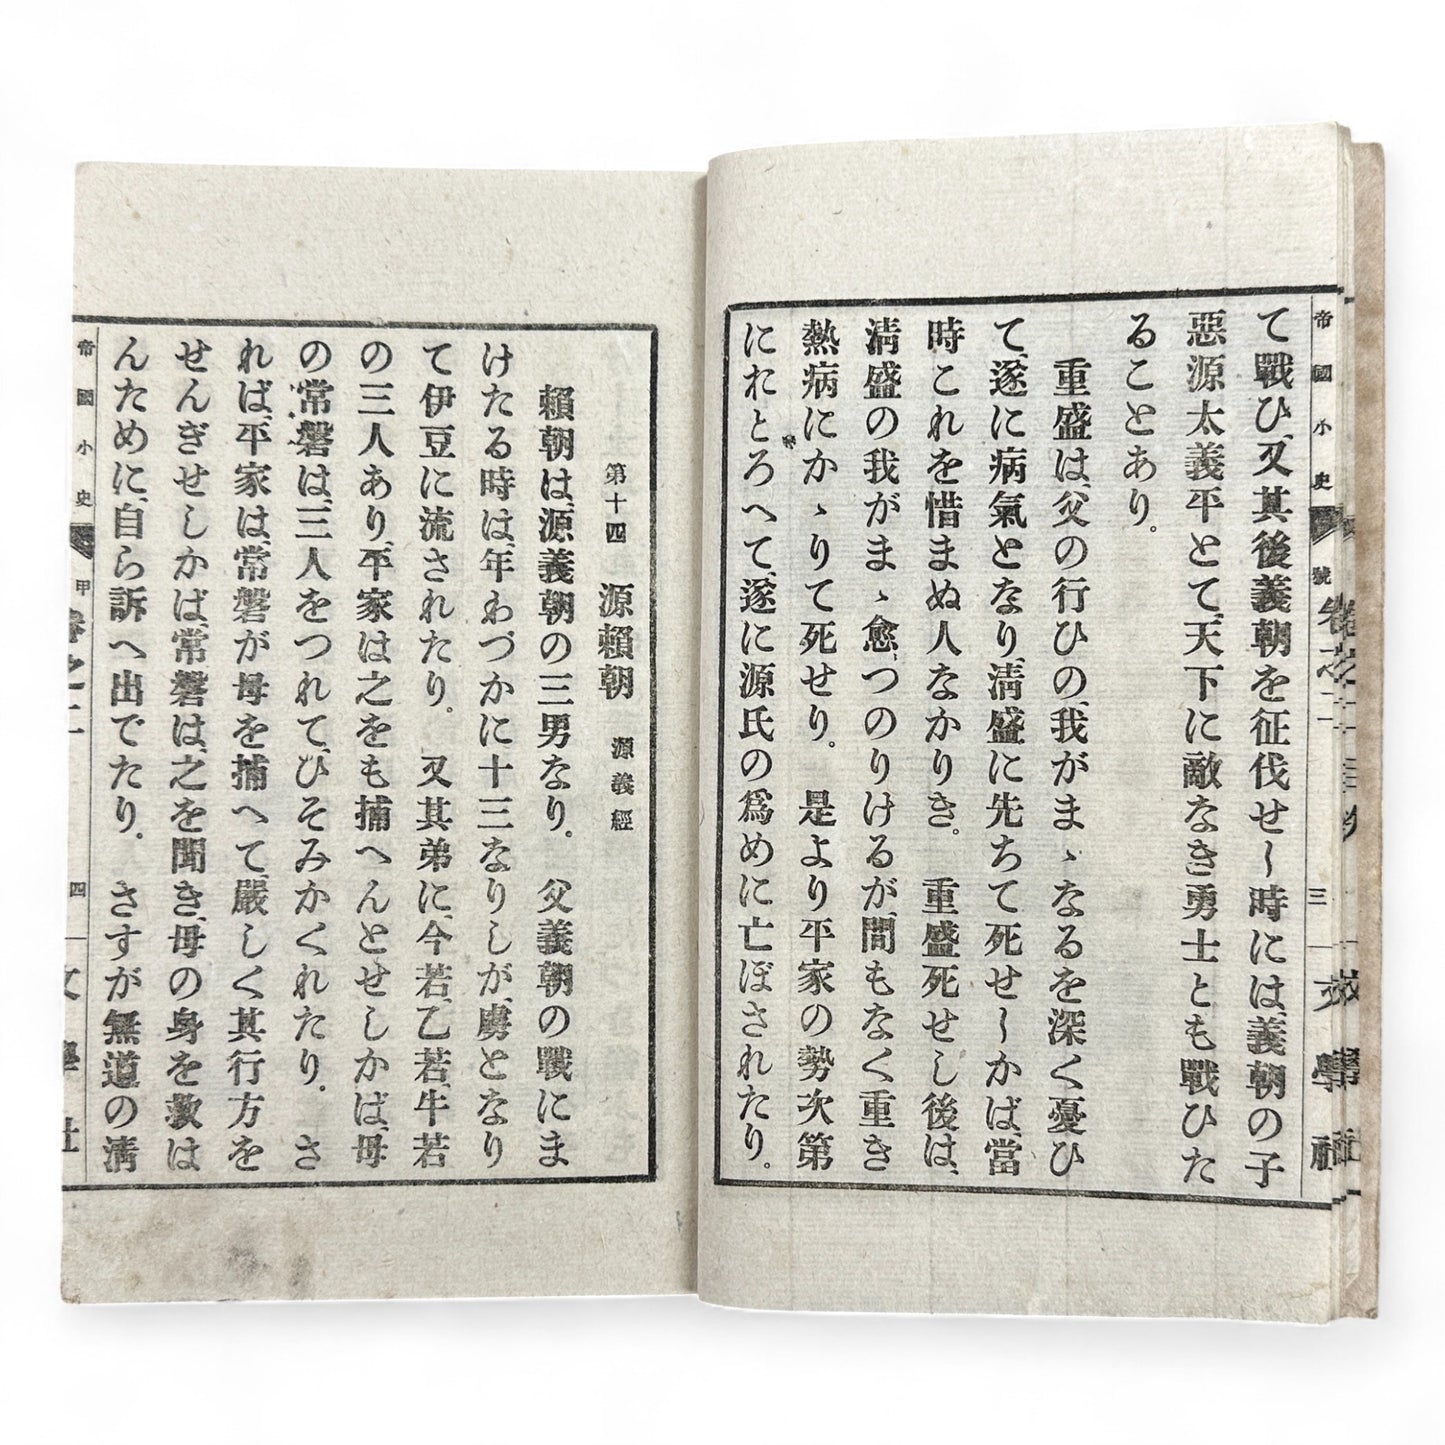 帝國小史
號
卷之二
三
文學社
て戰ひ、又其後義朝を征伐せし時には、義朝の子
惡源太義平とて、天下に敵なき勇士とも戰ひた
ることあり。
重盛は、父の行ひの、我がまゝなるを深く憂ひ
て、遂に病氣となり、淸盛に先ちて死せしかば、當
時これを惜まぬ人なかりき。重盛死せし後は、
淸盛の我がまゝ愈、つのりけるが、間もなく重き
熱病にかゝりて死せり。是より平家の勢次第
にれとろへて、遂に源氏の爲めに亡ぼされたり。
第十四 源賴朝 源義經
賴朝は、源義朝の三男なり。父義朝の戰にま
けたる時は、年わづかに十三なりしが、虜となり
て伊豆に流されたり。又其弟に、今若、乙若、牛若
の三人あり、平家は之をも捕へんとせしかば、母
の常磐は、三人をつれて、ひそみかくれたり。さ
れば、平家は、常磐が母を捕へて、嚴しく其行方を
せんぎせしかば、常磐は、之を聞き、母の身を救は
んために、自ら訴へ出でたり。さすが無道の淸
帝國小史
甲
卷之二
四
文學社